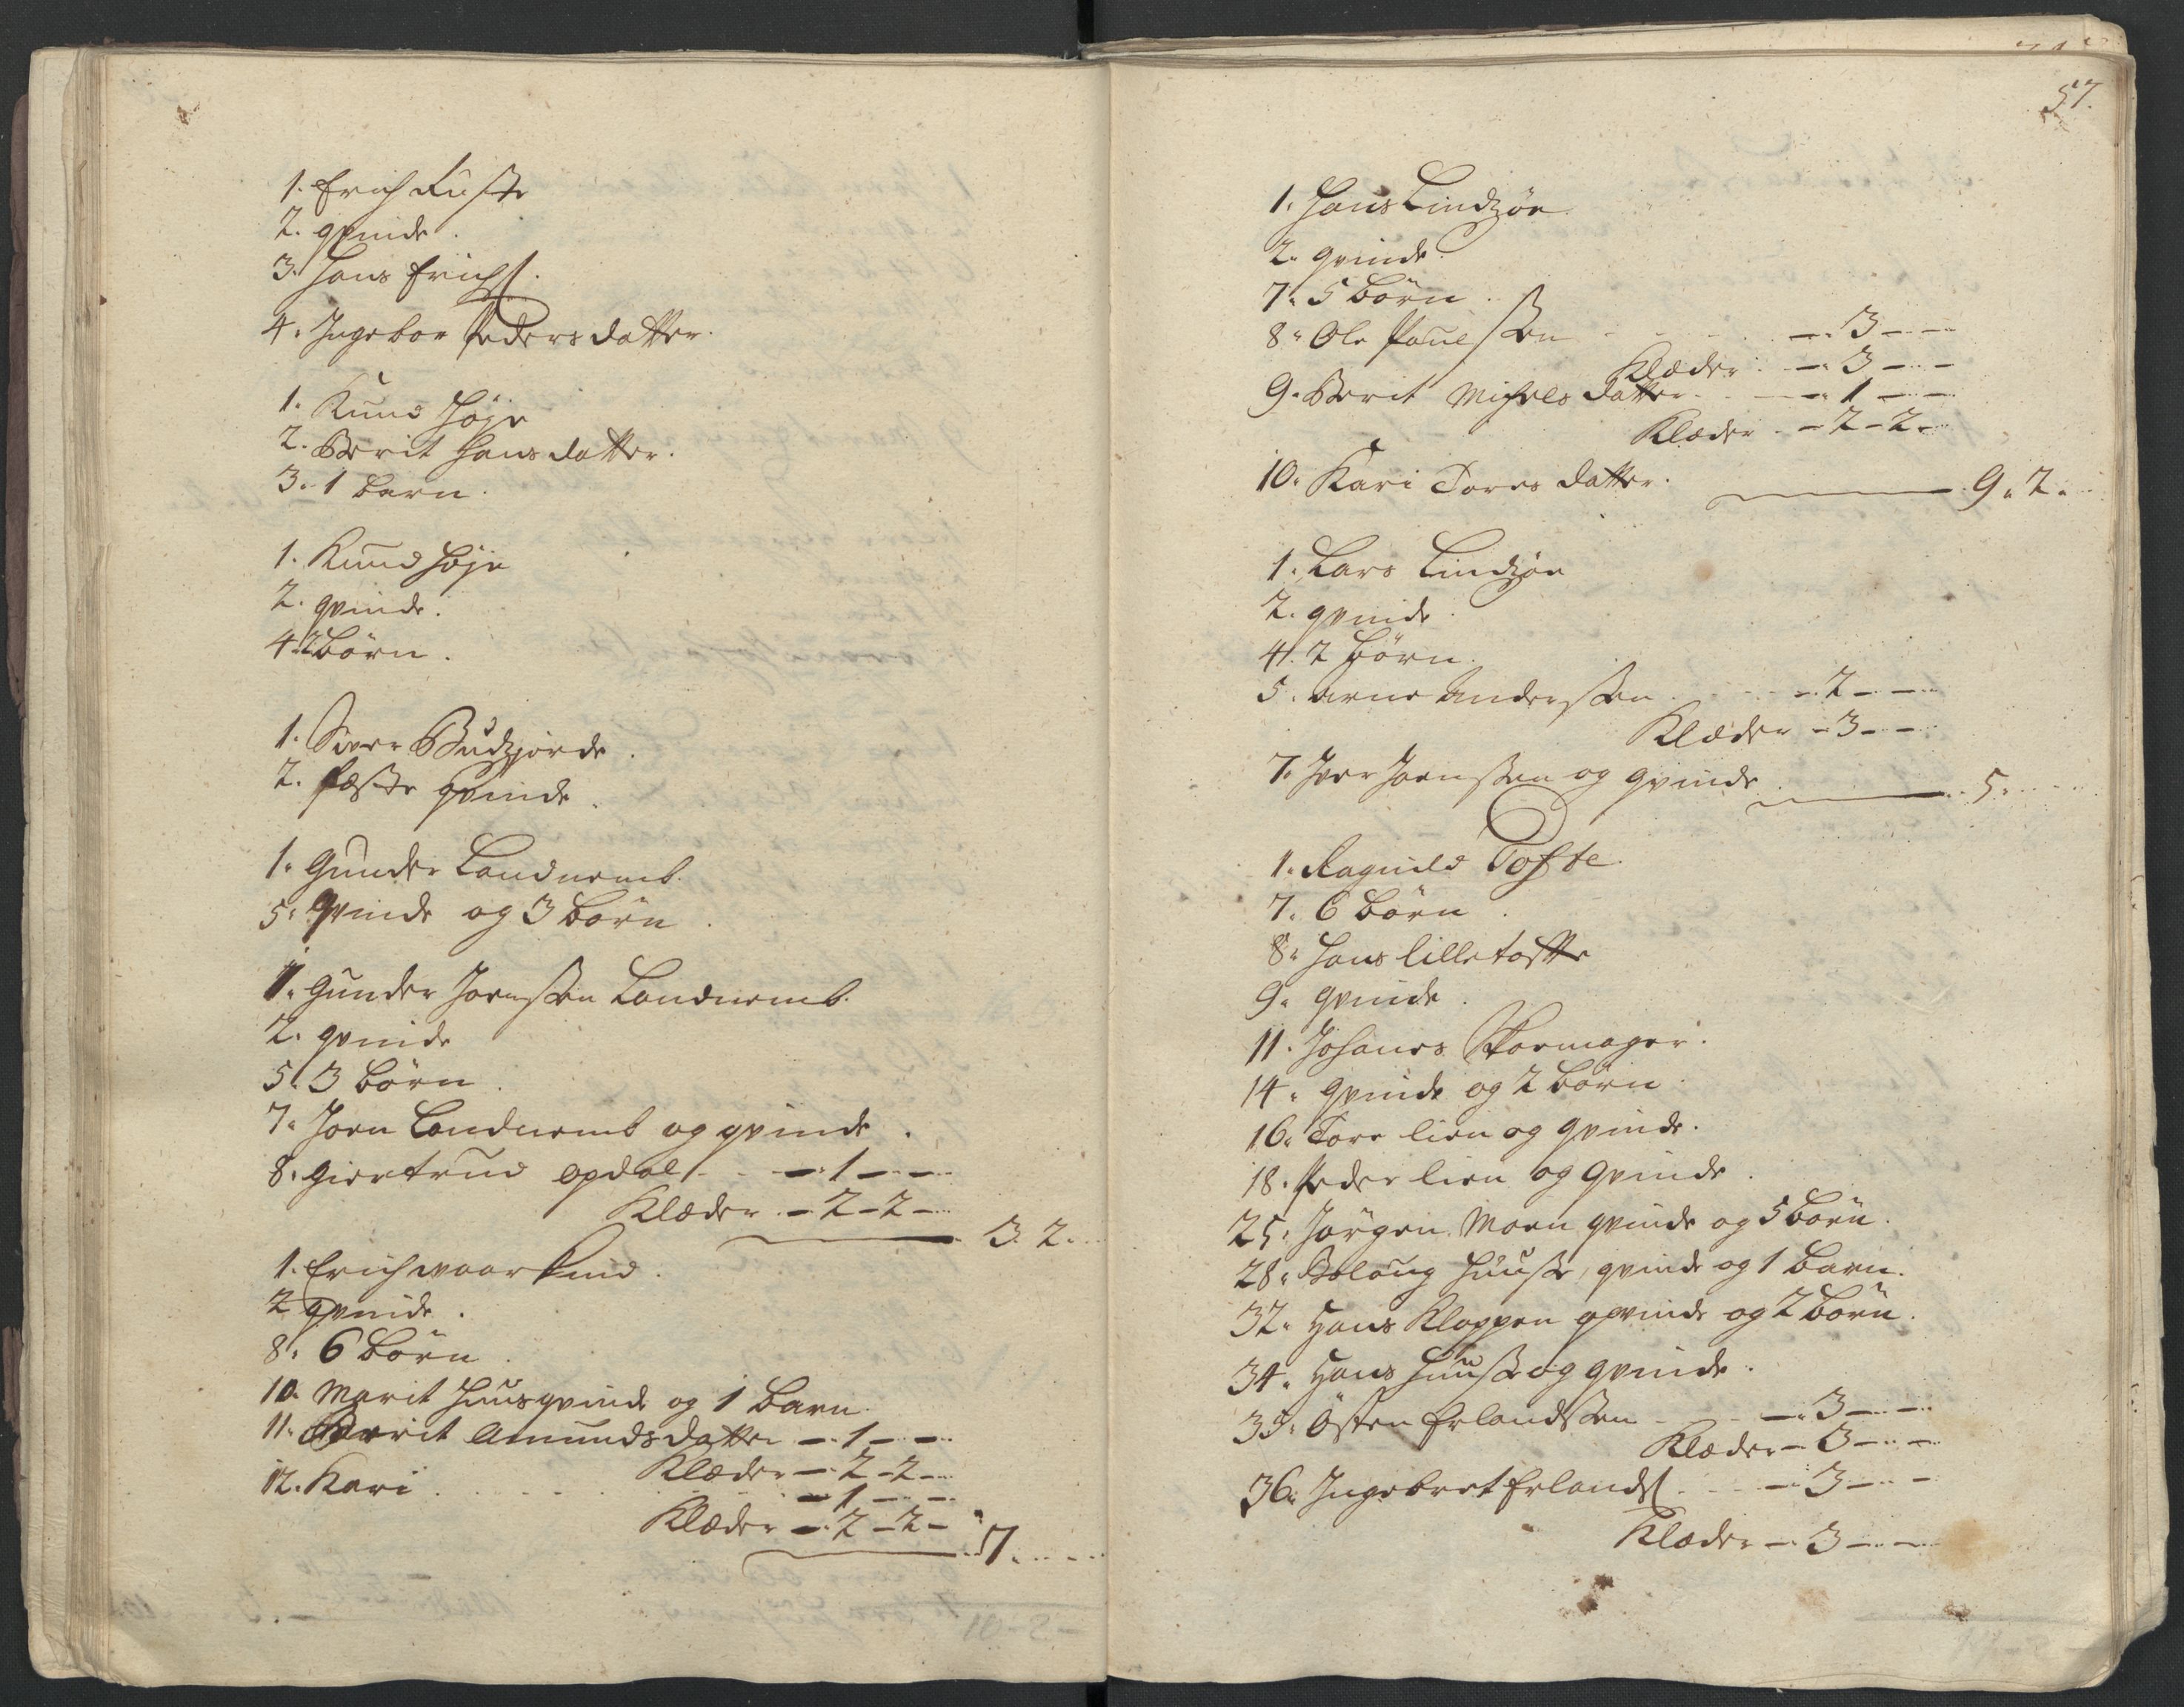 1. Erich Ruste
2. qvinde.
3. Hans Erichs.
4. Ingebor Pedersdatter.
1. Knud Höye
2. Berit Hansdatter.
3. 1 barn.
1. Knud Höye
2. qvinde.
4. 2 börn.
1. Siver Budzjorde.
2. Fæste qvinde.
1. Gunder Landnemb.
5. Qvinde og 3 börn.
1. Gunder Joenssen Landnemb.
2. qvinde
5. 3 börn.
7. Joen Landnemb og qvinde.
8. Giertrud opdal - - 1 - -
Klæder - 2 - 2 -
3. 2.
1. Erich
2 qvinde.
8. 6 börn.
10. Marit huusqvinde og 1 barn.
11. Berit Amundsdatter - 1 - -
Klæder - 2 - 2 -
12. Kari - 1 - -
Klæder - 2 - 2 -
7.
57.
1. Hans Lindzöe
2. qvinde.
7. 5 börn.
8. Ole Pouelssen - - 3 - -
Klæder - 3 - -
9. Berit Michelsdatter - - 1 - -
Klæder - 2 - 2 -
10. Kari Toresdatter.
9. 2.
1. Lars Lindzöe
2. qvinde.
4. 2 börn.
5. Arne Anderssen - - 2 - -
Klæder - 3 - -
7. Iver Joenssen og qvinde
5.
1. Ragnild Tofte.
7. 6 börn.
8. Hans lilletofte
9. qvinde.
11. Johanes Skoemager.
14. qvinde og 2 börn.
16. Tore lien og qvinde.
18. Peder lien og qvinde.
25. Jörgen Moen qvinde og 5 börn.
28. huuse, qvinde og 1 barn.
32. Hans Kloppen qvinde og 2 börn.
34. Hans huuse og qvinde.
35. Östen Erlandssen - - 3 - -
Klæder - 3 - -
36. Ingebret Erlands. - - 3 - -
Klæder - 3 - -